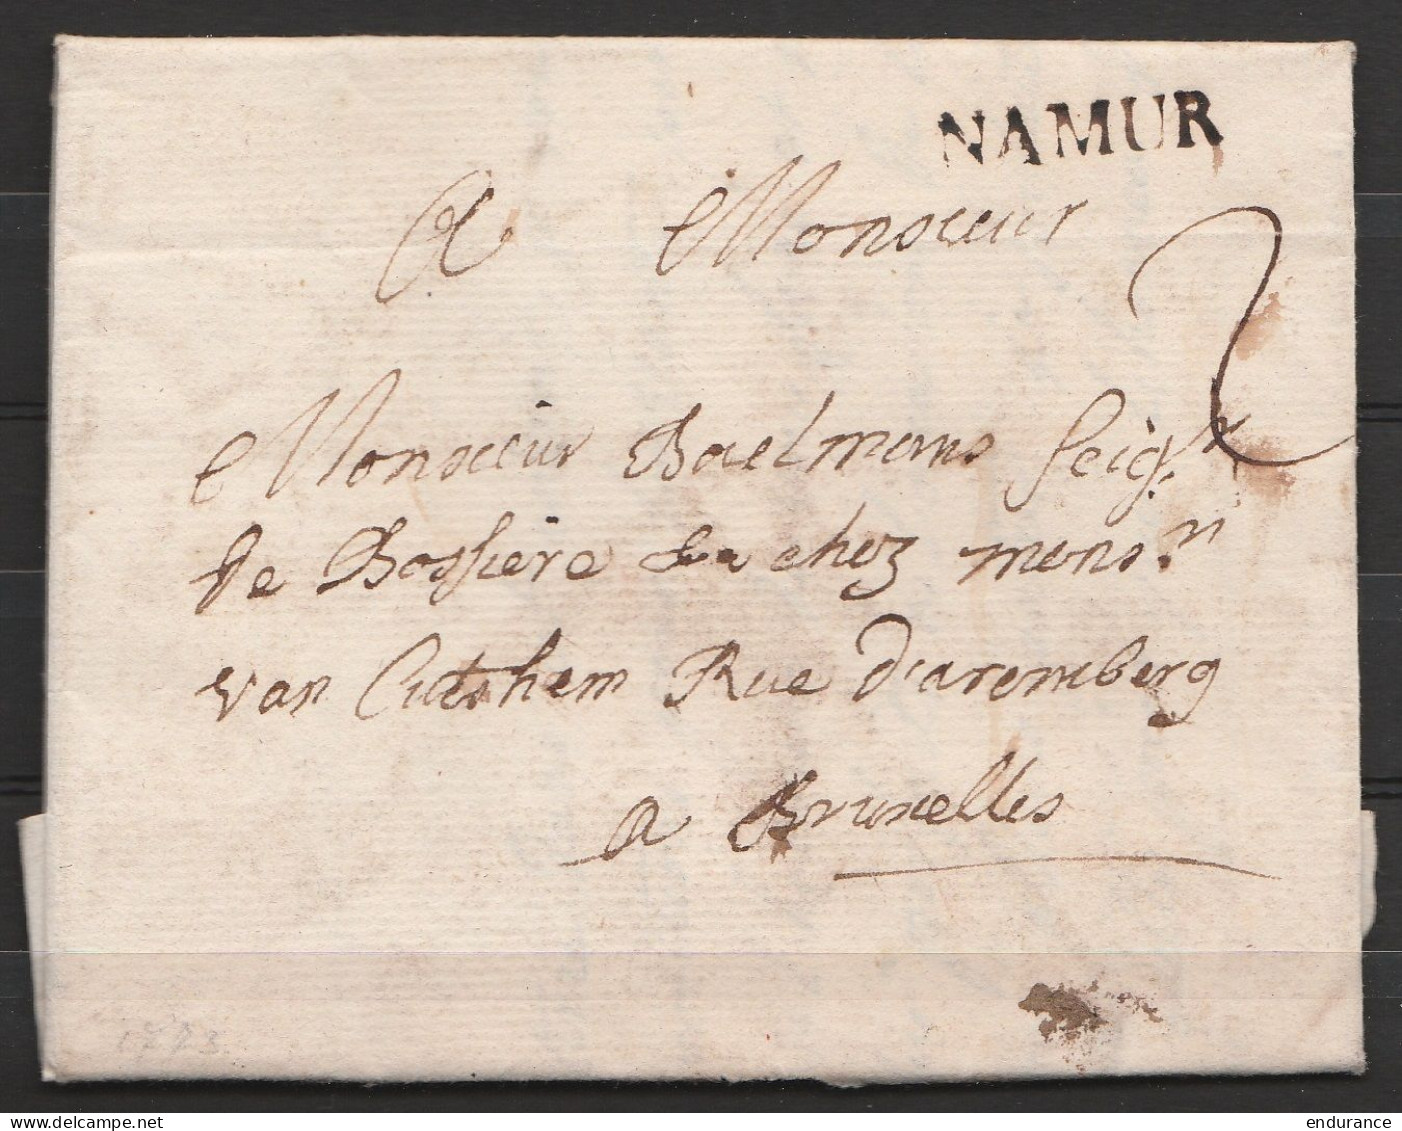 NAMUR
A Monsieur
2
Monsieur Baelmans Seig.r
de Bossiere &a chez mons.r
van Cutshem Rue d'aremberg
a Bruxelles
1773
delcampe.net
endurance